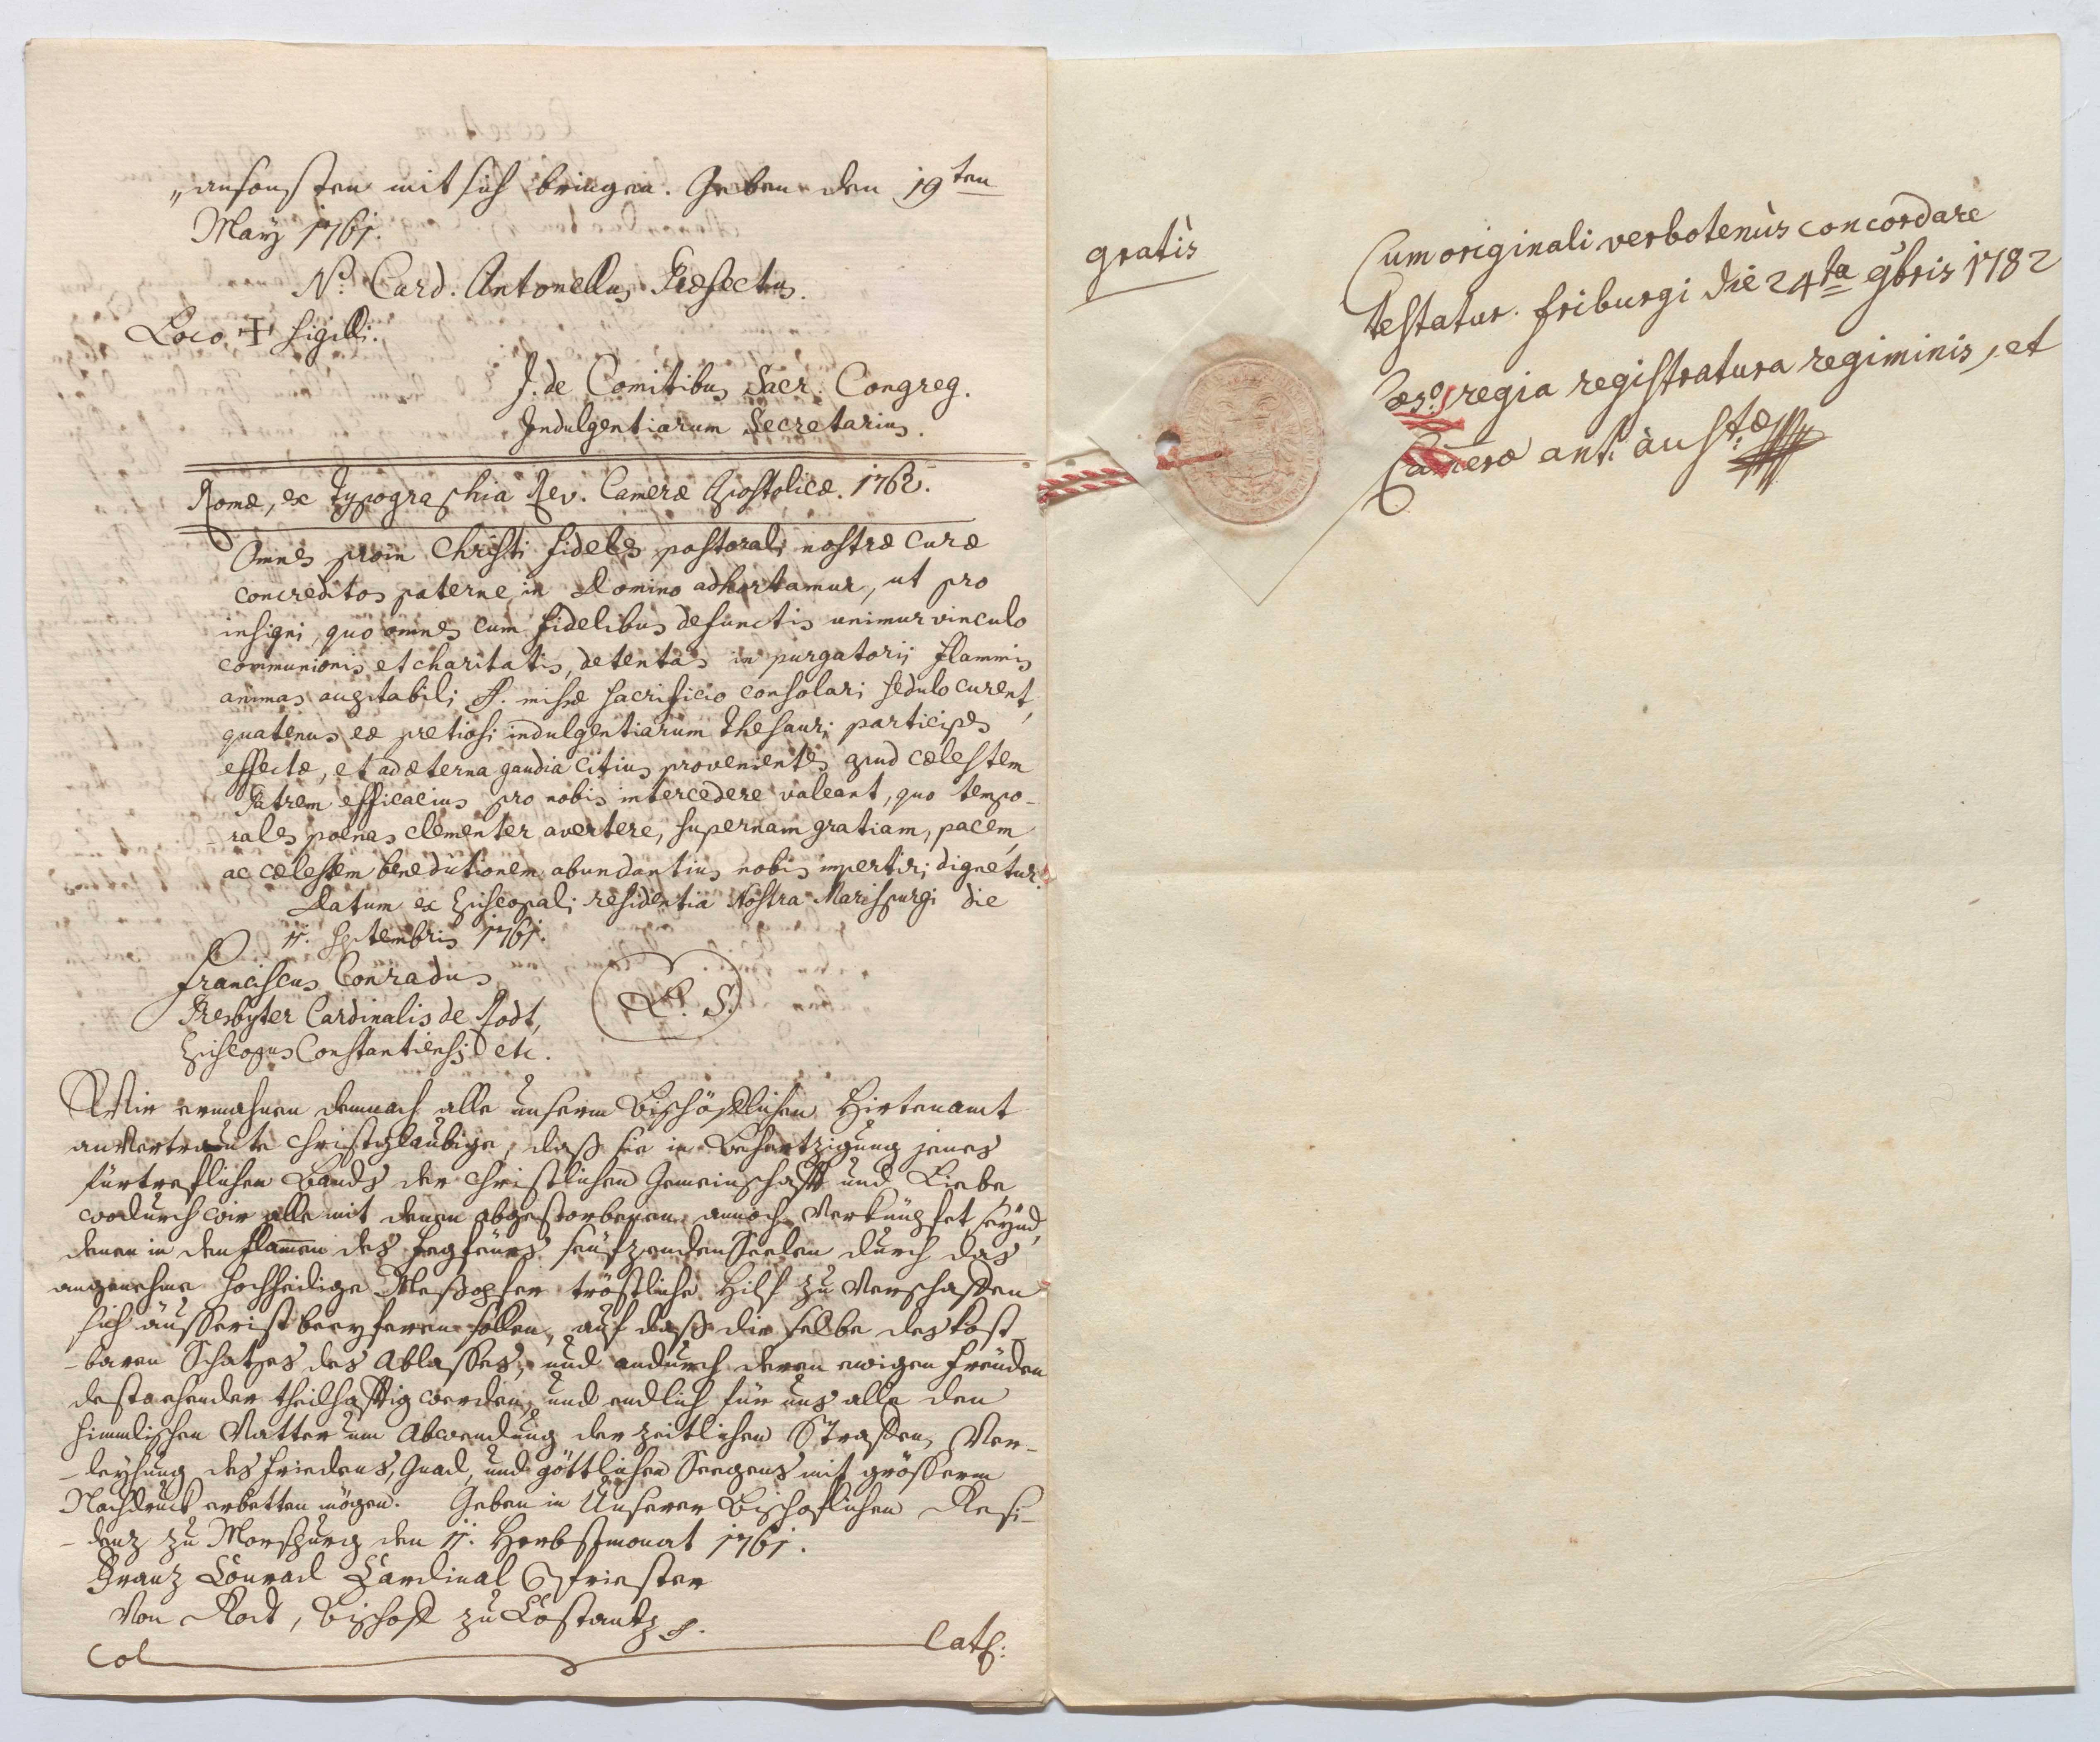 „ansonsten mit sich bringen. Geben den 19ten
May 1761.
N. Card. Antonellus Præfectus.
Loco ✝ sigilli.
J. de Comitibus Sacr. Congreg.
Indulgentiarum Secretarius.
Romæ, ex Typographia Rev. Cameræ Apostolicæ. 1762.
Omnes proin Christi fideles pastorali nostræ curæ
concreditos paterne in Domino adhortamur, ut pro
insigni, quo omnes cum fidelibus defunctis unimur vinculo
communionis et charitatis, detentas in purgatorij flammis
animas acceptabili S. missæ sacrificio consolari sedulo curent,
quatenus eæ pretiosi indulgentiarum thesauri participes
effectæ, et ad æterna gaudia citius provenientes apud cælestem
Patrem efficacius pro nobis intercedere valeant, quo tempo-
-rales poenas clementer avertere, supernam gratiam, pacem,
ac cælestem benedictionem abundantius nobis impertiri dignetur.
Datum ex Episcopali residentia Nostra Marispurgi die
11. Septembris 1761.
Franciscus Conradus
Presbyter Cardinalis de Rodt,
Episcopus Constantiensis etc.
L. S.
Wir ermahnen demnach alle unserm Bischöfflichen Hirtenamt
anvertraute Christglaubige, daß sie in Behertzigung jenes
fürtreflichen Bands der Christlichen Gemeinschafft und Liebe
wodurch wir alle mit denen abgestorbenen annoch verknüpfet seynd,
denen in den flam̅en des Fegfeürs seüfzenden Seelen durch das
angenehme hochheilige Meßopfer tröstliche Hilf zu verschaffen
sich äusserist beeyferen sollen, auf daß die selbe des kost-
-baren Schatzes des Ablasses, und andurch deren ewigen Freüden
desto ehender theilhafftig werden, und endlich für uns alle den
himmlischen Vatter um Abwendung der zeitlichen Straffen, Ver-
-leyhung des Friedens, Gnad, und göttlichen Seegens mit grösserm
Nachdruck erbetten mögen. Geben in Unserer Bischoflichen Resi-
-denz zu Morspurg den 11. Herbstmonat 1761.
Franz Conrad Cardinal Priester
von Rodt, Bischoff zu Costantz
Col Cath:
gratis
Cum originali verbotenùs concordare
testatur. friburgi die 24ta 9bris 1782
Cæso regia registratura regiminis, et
Cameræ ant. aust:æ